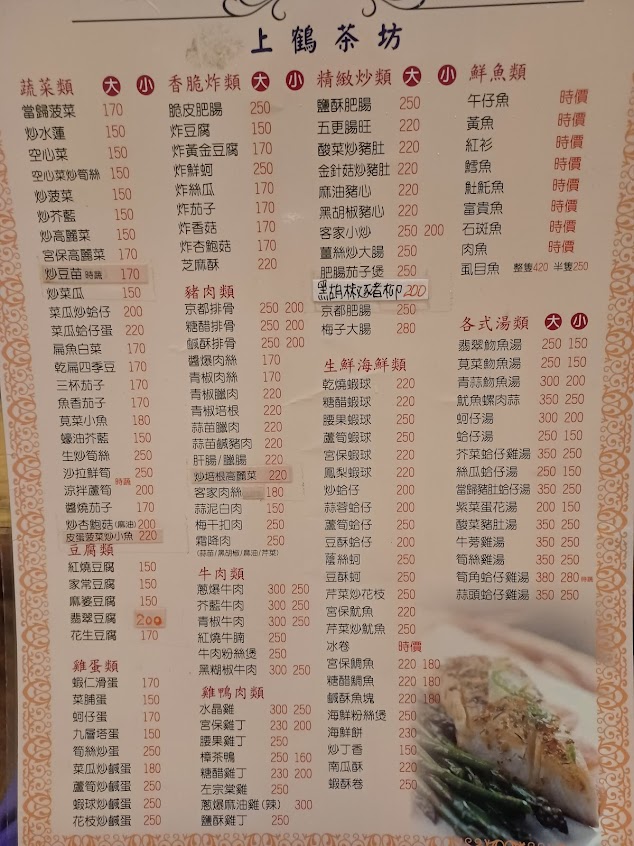 上鶴茶坊
蔬菜類 大 小
當歸菠菜 170
炒水蓮 150
空心菜 150
空心菜炒筍絲 150
炒菠菜 150
炒芥藍 150
炒高麗菜 150
宮保高麗菜 170
炒豆苗 時蔬 170
炒菜瓜 150
菜瓜炒蛤仔 200
菜瓜蛤仔蛋 220
扁魚白菜 170
乾扁四季豆 170
三杯茄子 170
魚香茄子 170
莧菜小魚 180
蠔油芥藍 150
生炒筍絲 250
沙拉鮮筍 時蔬 250
涼拌蘆筍 200
醬燒茄子 170
炒杏鮑菇(麻油) 200
皮蛋菠菜炒小魚 220
豆腐類
紅燒豆腐 150
家常豆腐 150
麻婆豆腐 150
翡翠豆腐 200
花生豆腐 170
雞蛋類
蝦仁滑蛋 170
菜脯蛋 150
蚵仔蛋 170
九層塔蛋 150
筍絲炒蛋 250
菜瓜炒鹹蛋 180
蘆筍炒鹹蛋 250
蝦球炒鹹蛋 250
花枝炒鹹蛋 250
香脆炸類 大 小
脆皮肥腸 250
炸豆腐 150
炸黃金豆腐 170
炸鮮蚵 250
炸絲瓜 170
炸茄子 170
炸香菇 170
炸杏鮑菇 170
芝麻酥 220
豬肉類
京都排骨 250 200
糖醋排骨 250 200
鹹酥排骨 250 200
醬爆肉絲 170
青椒肉絲 170
青椒臘肉 220
青椒培根 220
蒜苗臘肉 220
蒜苗鹹豬肉 220
肝腸/臘腸 220
炒培根高麗菜 220
客家肉絲 180
蒜泥白肉 150
梅干扣肉 250
霜降肉 250
(蒜苗/黑胡椒/醬油/芹菜)
牛肉類
蔥爆牛肉 300 250
芥藍牛肉 300 250
青椒牛肉 300 250
紅燒牛腩 250
牛肉粉絲煲 250
黑糊椒牛肉 300 250
雞鴨肉類
水晶雞 300 250
宮保雞丁 230 200
腰果雞丁 250
樟茶鴨 250 160
糖醋雞丁 230 200
左宗棠雞 250
蔥爆麻油雞(辣) 300
鹽酥雞丁 250
精緻炒類 大 小
鹽酥肥腸 250
五更腸旺 220
酸菜炒豬肚 220
金針菇炒豬肚 220
麻油豬心 220
黑胡椒豬心 220
客家小炒 250 200
薑絲炒大腸 250
肥腸茄子煲 250
黑胡椒豬柳 200
京都肥腸 250
梅子大腸 280
生鮮海鮮類
乾燒蝦球 220
糖醋蝦球 220
腰果蝦球 250
蘆筍蝦球 250
宮保蝦球 220
鳳梨蝦球 220
炒蛤仔 200
蒜蓉蛤仔 200
蘆筍蛤仔 250
豆酥蛤仔 220
蔭絲蚵 250
豆酥蚵 250
芹菜炒花枝 250
宮保魷魚 220
芹菜炒魷魚 250
冰卷 時價
宮保鯛魚 220 180
糖醋鯛魚 220 180
鹹酥魚塊 220 180
海鮮粉絲煲 250
海鮮餅 230
炒丁香 150
南瓜酥 220
蝦酥卷 250
鮮魚類
午仔魚 時價
黃魚 時價
紅衫 時價
鱈魚 時價
魠魠魚 時價
富貴魚 時價
石斑魚 時價
肉魚 時價
虱目魚 整隻420 半隻250
各式湯類 大 小
翡翠魩魚湯 250 150
莧菜魩魚湯 250 150
青蒜魩魚湯 300 200
魷魚螺肉蒜 350 250
蚵仔湯 300 200
蛤仔湯 250 150
芥菜蛤仔雞湯 350 250
絲瓜蛤仔湯 250 150
當歸豬肚蛤仔湯 350 250
紫菜蛋花湯 200 150
酸菜豬肚湯 350 250
牛蒡雞湯 350 250
筍絲雞湯 350 250
筍角蛤仔雞湯 380 280 時蔬
蒜頭蛤仔雞湯 350 250